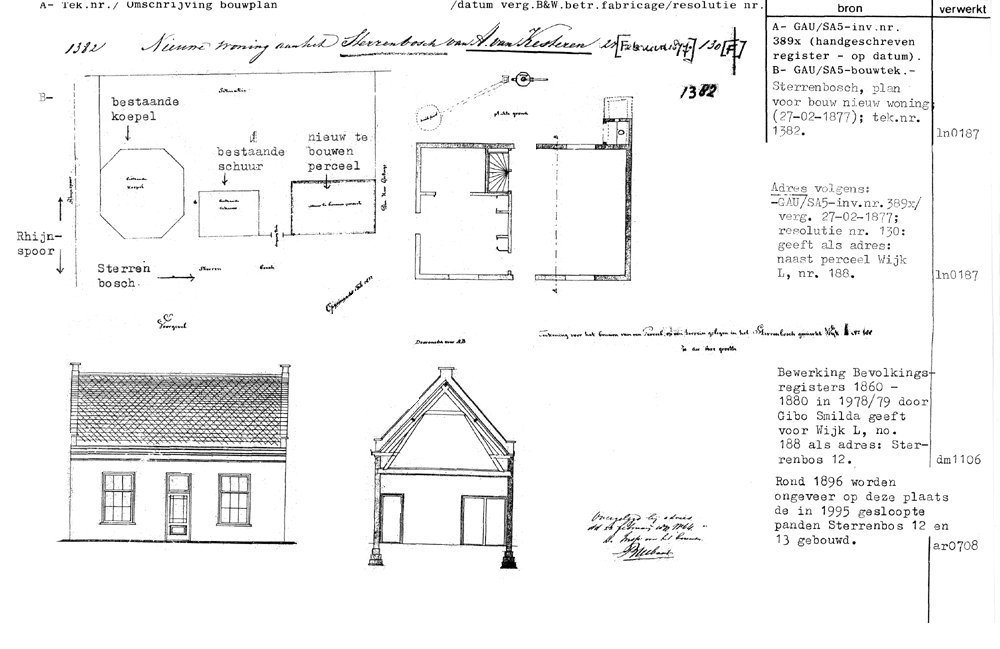 A- Tek.nr./ Omschrijving bouwplan
/datum verg.B&W.betr.fabricage/resolutie nr.
bron
verwerkt
1382
Nieuwe woning aan het Sterrenbosch van A. van Kesteren
28 [Februari 1877.] 130 [F]
1382
A- GAU/SA5-inv.nr.
389x (handgeschreven
register - op datum).
B- GAU/SA5-bouwtek.-
Sterrenbosch, plan
voor bouw nieuw woning
(27-02-1877); tek.nr.
1382.
ln0187
B-
Situatie
bestaande
koepel
bestaande
schuur
nieuw te
bouwen
perceel
Rhijn-
spoor
Sterren
bosch.
Sterren
Bosch
Adres volgens:
-GAU/SA5-inv.nr.389x/
verg. 27-02-1877;
resolutie nr. 130:
geeft als adres:
naast perceel Wijk
L, nr. 188.
ln0187
Voorgevel
Doorsnede over AB
Teekening voor het bouwen van een Perceel, op een terrein gelegen in het Sterrenbosch gemerkt Wijk L No 188
Bewerking Bevolkings-
registers 1860 -
1880 in 1978/79 door
Gibo Smilda geeft
voor Wijk L, no.
188 als adres: Ster-
renbos 12.
dm1106
Rond 1896 worden
ongeveer op deze plaats
de in 1995 gesloopte
panden Sterrenbos 12 en
13 gebouwd.
ar0708